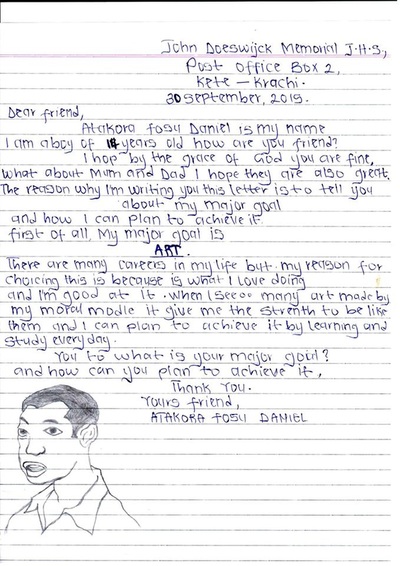 John Doeswijck Memorial J.H.S.,
Post Office Box 2,
Kete - Krachi.
30 September, 2019.
Dear friend,
Atakora fosu Daniel is my name
I am a boy of years old how are you friend?
I hop by the grace of God you are fine,
what about Mum and Dad I hope they are also great.
The reason why I'm writing you this letter is to tell you
about my major goal
and how I can plan to achieve it.
first of all, My major goal is
ART.
There are many careers in my life but my reason for
choicing this is because is what I love doing
and I'm good at it. when I see many art made by
my moral modle it give me the strenth to be like
them and I can plan to achieve it by learning and
study every day.
You to what is your major goal?
and how can you plan to achieve it,
Thank You.
Yours friend,
ATAKORA FOSU DANIEL